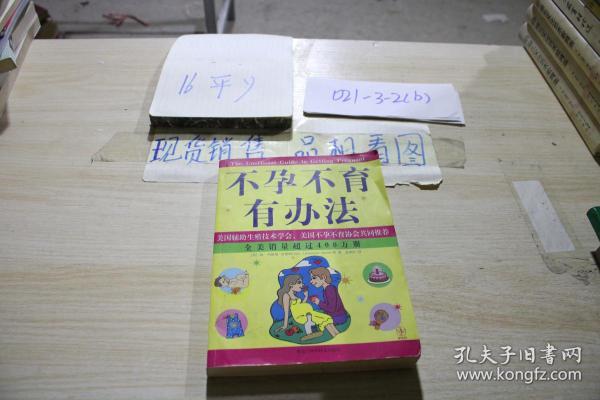 16平y
021-3-2(b)
现货销售 品相看图
The Unofficial Guide to Getting Pregnant
不孕不育
有办法
美国辅助生殖技术学会、美国不孕不育协会共同推荐
全美销量超过400万册
孔夫子旧书网
www.kongfz.com